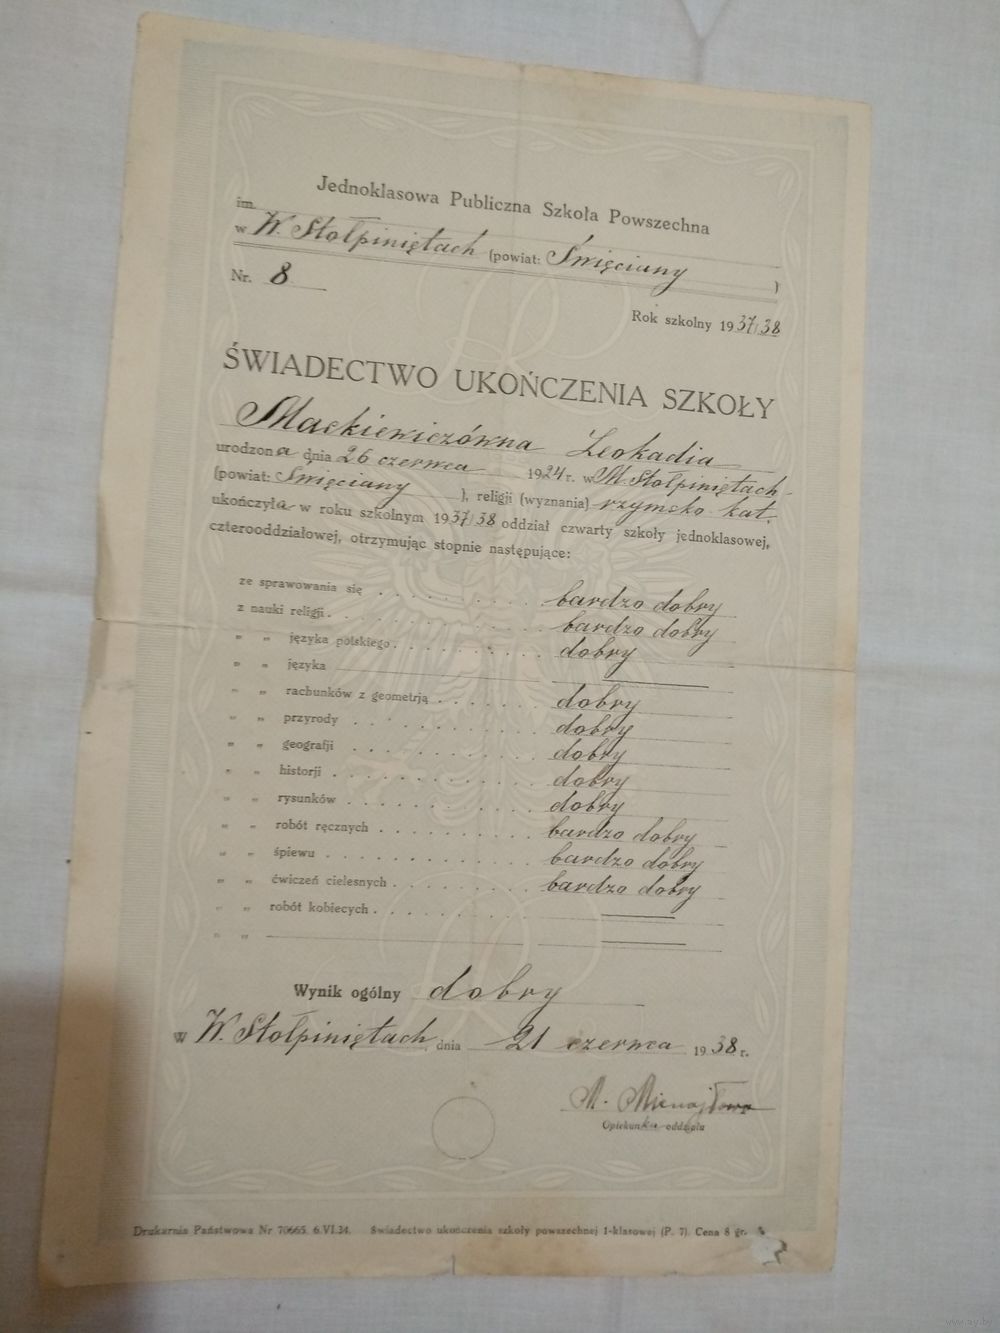 Jednoklasowa Publiczna Szkoła Powszechna
im.
w W. Stołpiniętach (powiat: Święciany )
Nr. 8
Rok szkolny 1937/38
ŚWIADECTWO UKOŃCZENIA SZKOŁY
Mackiewiczówna Leokadia
urodzona dnia 26 czerwca 1924 r. w M. Stołpiniętach
(powiat: Święciany ), religji (wyznania) rzymsko kat.
ukończyła w roku szkolnym 1937/38 oddział czwarty szkoły jednoklasowej,
czterooddziałowej, otrzymując stopnie następujące:
ze sprawowania się . . . . . . . bardzo dobry
z nauki religji . . . . . . . . bardzo dobry
" " języka polskiego . . . . . . dobry
" " języka
" " rachunków z geometrją . . . . . dobry
" " przyrody . . . . . . . . dobry
" " geografji . . . . . . . . dobry
" " historji . . . . . . . . dobry
" " rysunków . . . . . . . . dobry
" " robót ręcznych . . . . . . . bardzo dobry
" " śpiewu . . . . . . . . . bardzo dobry
" " ćwiczeń cielesnych . . . . . . bardzo dobry
" " robót kobiecych . . . . . . .
" "
Wynik ogólny dobry
W W. Stołpiniętach, dnia 21 czerwca 1938 r.
M.
Opiekunka oddziału
Drukarnia Państwowa Nr 70665. 6.VI.34. Świadectwo ukończenia szkoły powszechnej 1-klasowej (P. 7). Cena 8 gr.
www.ay.by